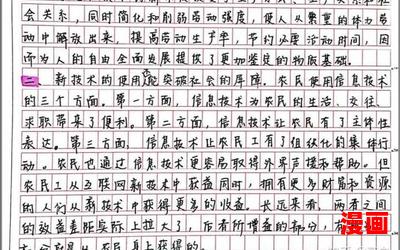 会关系，同时简化和削弱劳动强度，使人从繁重的体力劳
动中解放出来，提高劳动生产率，节约必要活动时间，因
而为人的自由全面发展提供了更加坚实的物质基础。
二、新技术的使用能突破社会的屏障。农民使用信息技术
的三个方面。第一方面，信息技术为农民的生活、交往、
求职带来了便利。第二方面，信息技术让农民有了主体性
表达。第三方面，信息技术让农民工有了组织化的集体行
动。农民也通过信息技术更容易取得外界声援和帮助。但
农民工从互联网新技术中获益同时，拥有更多财富和资源
的人们从新技术中获得更多的收益。长远来看，两者之间
的效益差距实际上拉大了，后者所增益的部分，有
农民身上获得的。
漫画